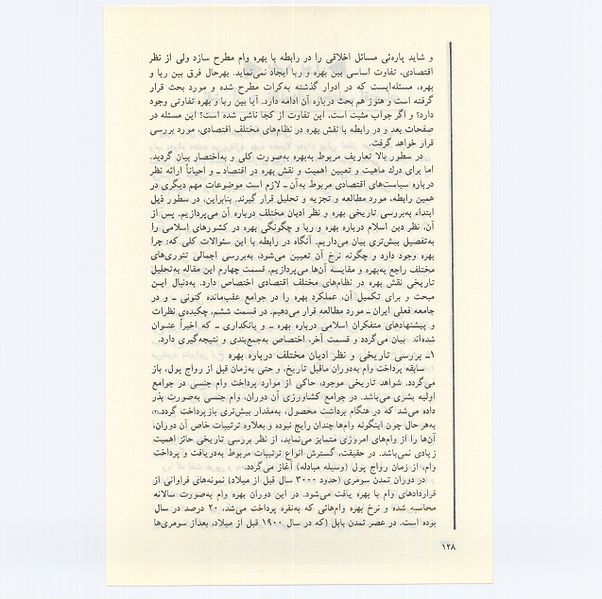 و شاید پاره‌ئی مسائل اخلاقی را در رابطه با بهره وام مطرح سازد ولی از نظر
اقتصادی، تفاوت اساسی بین بهره و ربا ایجاد نمی‌نماید. بهرحال فرق بین ربا و
بهره، مسئله‌ایست که در ادوار گذشته به‌کرات مطرح شده و مورد بحث قرار
گرفته است و هنوز هم بحث درباره آن ادامه دارد. آیا بین ربا و بهره تفاوتی وجود
دارد؟ و اگر جواب مثبت است، این تفاوت از کجا ناشی شده است؟ این مسئله در
صفحات بعد و در رابطه با نقش بهره در نظام‌های مختلف اقتصادی، مورد بررسی
قرار خواهد گرفت.
در سطور بالا تعاریف مربوط به‌بهره به‌صورت کلی و به‌اختصار بیان گردید.
اما برای درك ماهیت و تعیین اهمیت و نقش بهره در اقتصاد ـ و احیاناً ارائه نظر
درباره سیاست‌های اقتصادی مربوط به‌آن ـ لازم است موضوعات مهم دیگری در
همین رابطه، مورد مطالعه و تجزیه و تحلیل قرار گیرند. بنابراین، در سطور ذیل
ابتداء به‌بررسی تاریخی بهره و نظر ادیان مختلف درباره آن می‌پردازیم. پس از
آن، نظر دین اسلام درباره بهره و ربا و چگونگی بهره در کشورهای اسلامی را
به‌تفصیل بیش‌تری بیان می‌داریم. آنگاه در رابطه با این سئوالات کلی که: چرا
بهره وجود دارد و چگونه نرخ آن تعیین می‌شود، به‌بررسی اجمالی تئوری‌های
مختلف راجع به‌بهره و مقایسه آن‌ها می‌پردازیم. قسمت چهارم این مقاله به‌تحلیل
تاریخی نقش بهره در نظام‌های مختلف اقتصادی اختصاص دارد. به‌دنبال این
مبحث و برای تکمیل آن، عملکرد بهره را در جوامع عقب‌مانده کنونی ـ و در
جامعه فعلی ایران ـ مورد مطالعه قرار می‌دهیم. در قسمت ششم، چکیده‌ی نظرات
و پیشنهادهای متفکران اسلامی درباره بهره ـ و بانکداری ـ که اخیراً عنوان
شده‌اند بیان می‌گردد و قسمت آخر، اختصاص به‌جمع‌بندی و نتیجه‌گیری دارد.
۱ـ بررسی تاریخی و نظر ادیان مختلف درباره بهره
سابقه پرداخت وام به‌دوران ماقبل تاریخ، و حتی به‌زمان قبل از رواج پول، باز
می‌گردد. شواهد تاریخی موجود، حاکی از موارد پرداخت وام جنسی در جوامع
اولیه بشری می‌باشد. در جوامع کشاورزی آن دوران، وام جنسی به‌صورت بذر
داده می‌شد که در هنگام برداشت محصول، به‌مقدار بیش‌تری بازپرداخت گردد.
به‌هر حال چون اینگونه وام‌ها چندان رایج نبوده و بعلاوه ترتیبات خاص آن دوران،
آن‌ها را از وام‌های امروزی متمایز می‌نماید، از نظر بررسی تاریخی حائز اهمیت
زیادی نمی‌باشد. در حقیقت، گسترش انواع ترتیبات مربوط به‌دریافت و پرداخت
وام، از زمان رواج پول (وسیله مبادله) آغاز می‌گردد.
در دوران تمدن سومری (حدود ۳۰۰۰ سال قبل از میلاد) نمونه‌های فراوانی از
قراردادهای وام با بهره یافت می‌شود. در این دوران بهره وام به‌صورت سالانه
محاسبه شده و نرخ بهره وام‌هائی که به‌نقره پرداخت می‌شد، ۲۰ درصد در سال
بوده است. در عصر تمدن بابل (که در سال ۱۹۰۰ قبل از میلاد، بعداز سومری‌ها
۱۲۸